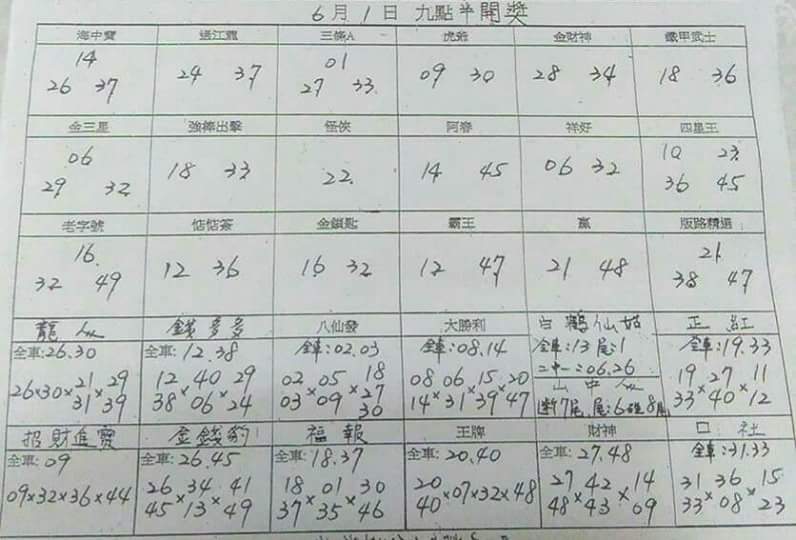 6月1日 九點半開獎
海中寶 過江龍 三條A 虎爺 金財神 鐵甲武士
14 01
26 37 24 37 27 33 09 30 28 34 18 36
金三星 強棒出擊 怪俠 阿春 祥好 四星王
06 10 23
29 32 18 33 22 14 45 06 32 36 45
老字號 惦惦茶 金鎖匙 霸王 贏 版路精選
16 21
32 49 12 36 16 32 12 47 21 48 38 47
龍 錢多多 八仙發 大勝利 白鶴仙姑 正紅
全車:26.30 全車:12.38 全車:02.03 全車:08.14 全車:13尾:1 全車:19.33
二中一:06.26
山中
26×30×21×29 12×40×29 02×05×18 08 06×15×20 19×27×11
31 39 38 06 24 03 09 27 14×31 39 47 33 40 12
30
尾:6 8尾
招財進寶 金錢豹 福報 王牌 財神 口社
全車:09 全車:26.45 全車:18.37 全車:20.40 全車:27.48 全車:31.33
09×32×36×44 26×34×41 18×01×30 20×07×32×48 27×42×14 31×36×15
45 13 49 37 35 46 40 48 43 69 33 08 23